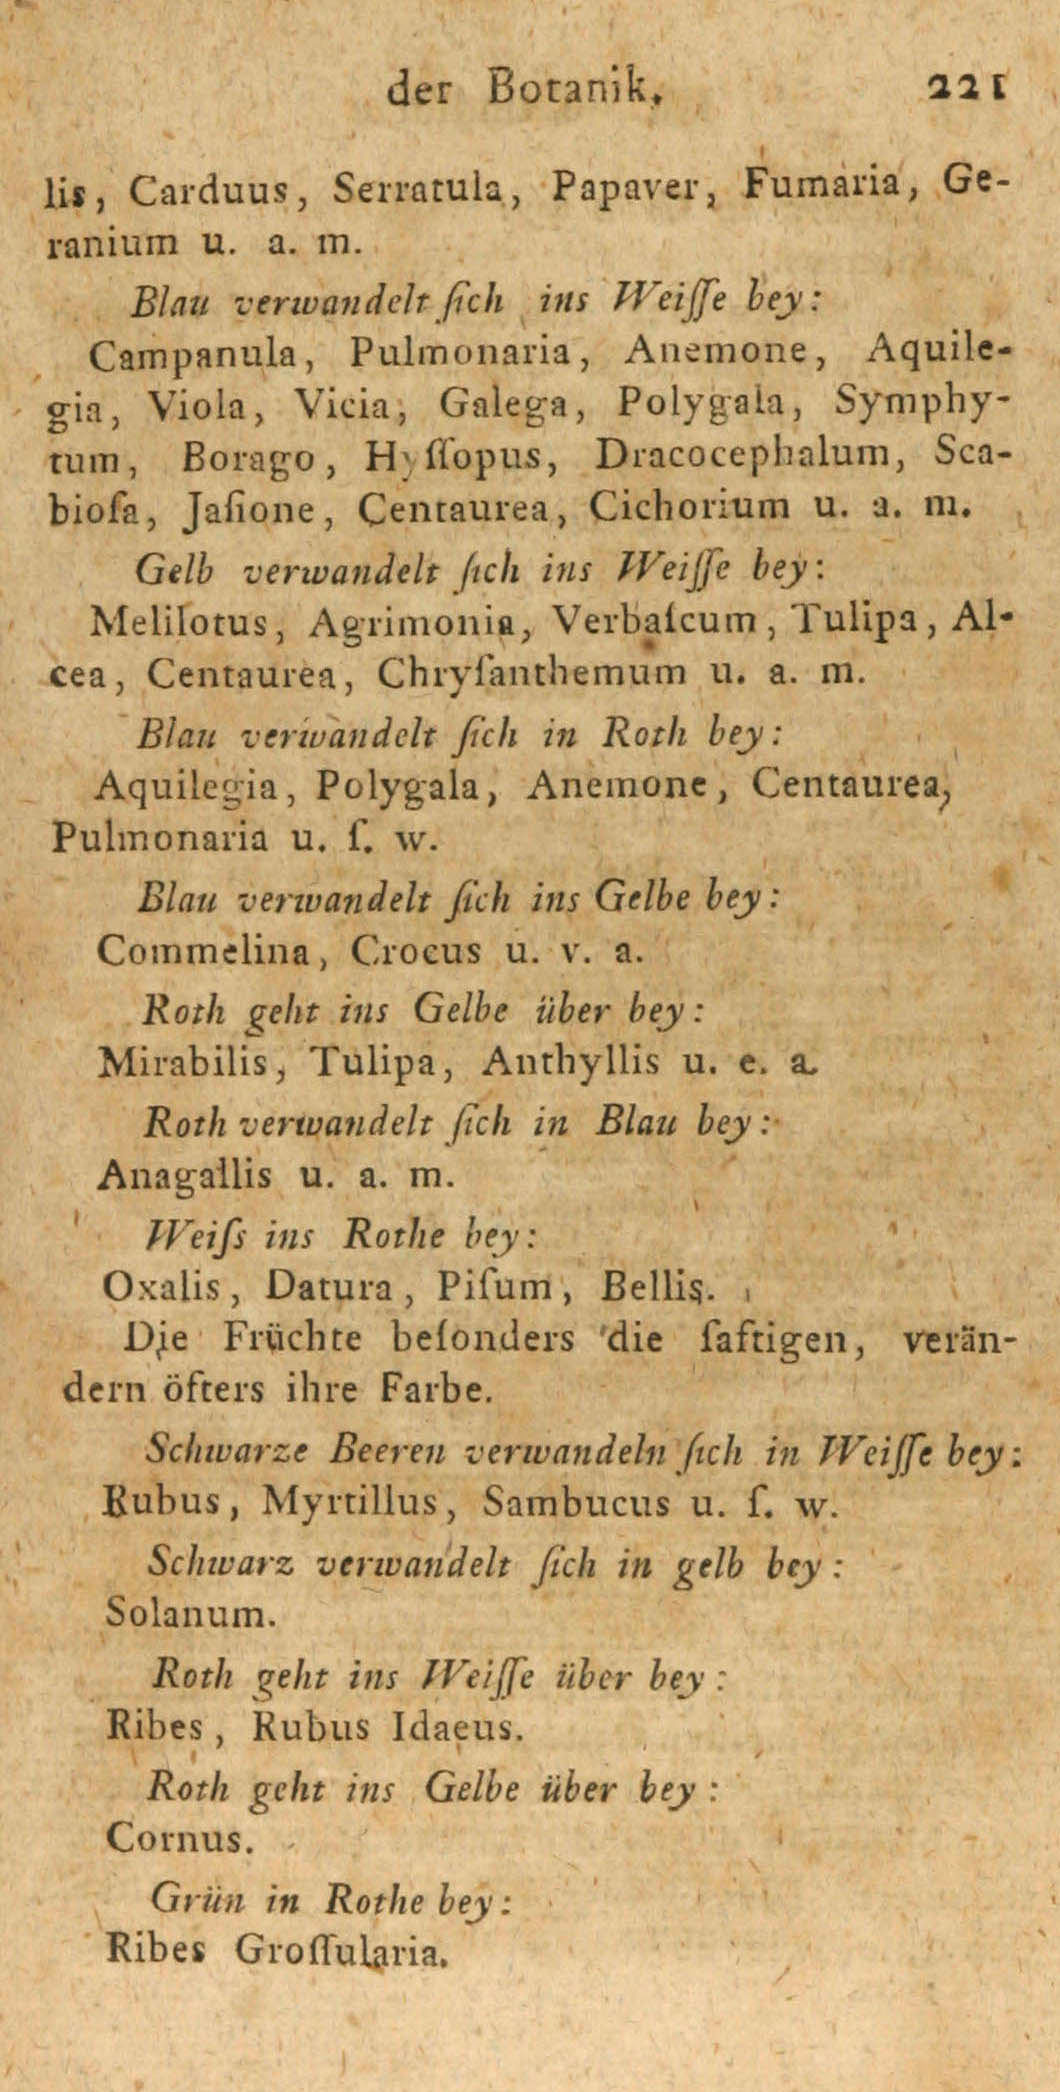 der Botanik. 221
lis, Carduus, Serratula, Papaver, Fumaria, Ge-
ranium u. a. m.
Blau verwandelt ſich ins Weiſſe bey:
Campanula, Pulmonaria, Anemone, Aquile-
gia, Viola, Vicia, Galega, Polygala, Symphy-
tum, Borago, Hyſſopus, Dracocephalum, Sca-
bioſa, Jaſione, Centaurea, Cichorium u. a. m.
Gelb verwandelt ſich ins Weiſſe bey:
Melilotus, Agrimonia, Verbaſcum, Tulipa, Al-
cea, Centaurea, Chryſanthemum u. a. m.
Blau verwandelt ſich in Roth bey:
Aquilegia, Polygala, Anemone, Centaurea,
Pulmonaria u. ſ. w.
Blau verwandelt ſich ins Gelbe bey:
Commelina, Crocus u. v. a.
Roth geht ins Gelbe über bey:
Mirabilis, Tulipa, Anthyllis u. e. a.
Roth verwandelt ſich in Blau bey:
Anagallis u. a. m.
Weiſs ins Rothe bey:
Oxalis, Datura, Piſum, Bellis.
Die Früchte beſonders die ſaftigen, verän-
dern öfters ihre Farbe.
Schwarze Beeren verwandeln ſich in Weiſſe bey:
Rubus, Myrtillus, Sambucus u. ſ. w.
Schwarz verwandelt ſich in gelb bey:
Solanum.
Roth geht ins Weiſſe über bey:
Ribes, Rubus Idaeus.
Roth geht ins Gelbe über bey:
Cornus.
Grün in Rothe bey:
Ribes Groſſularia.